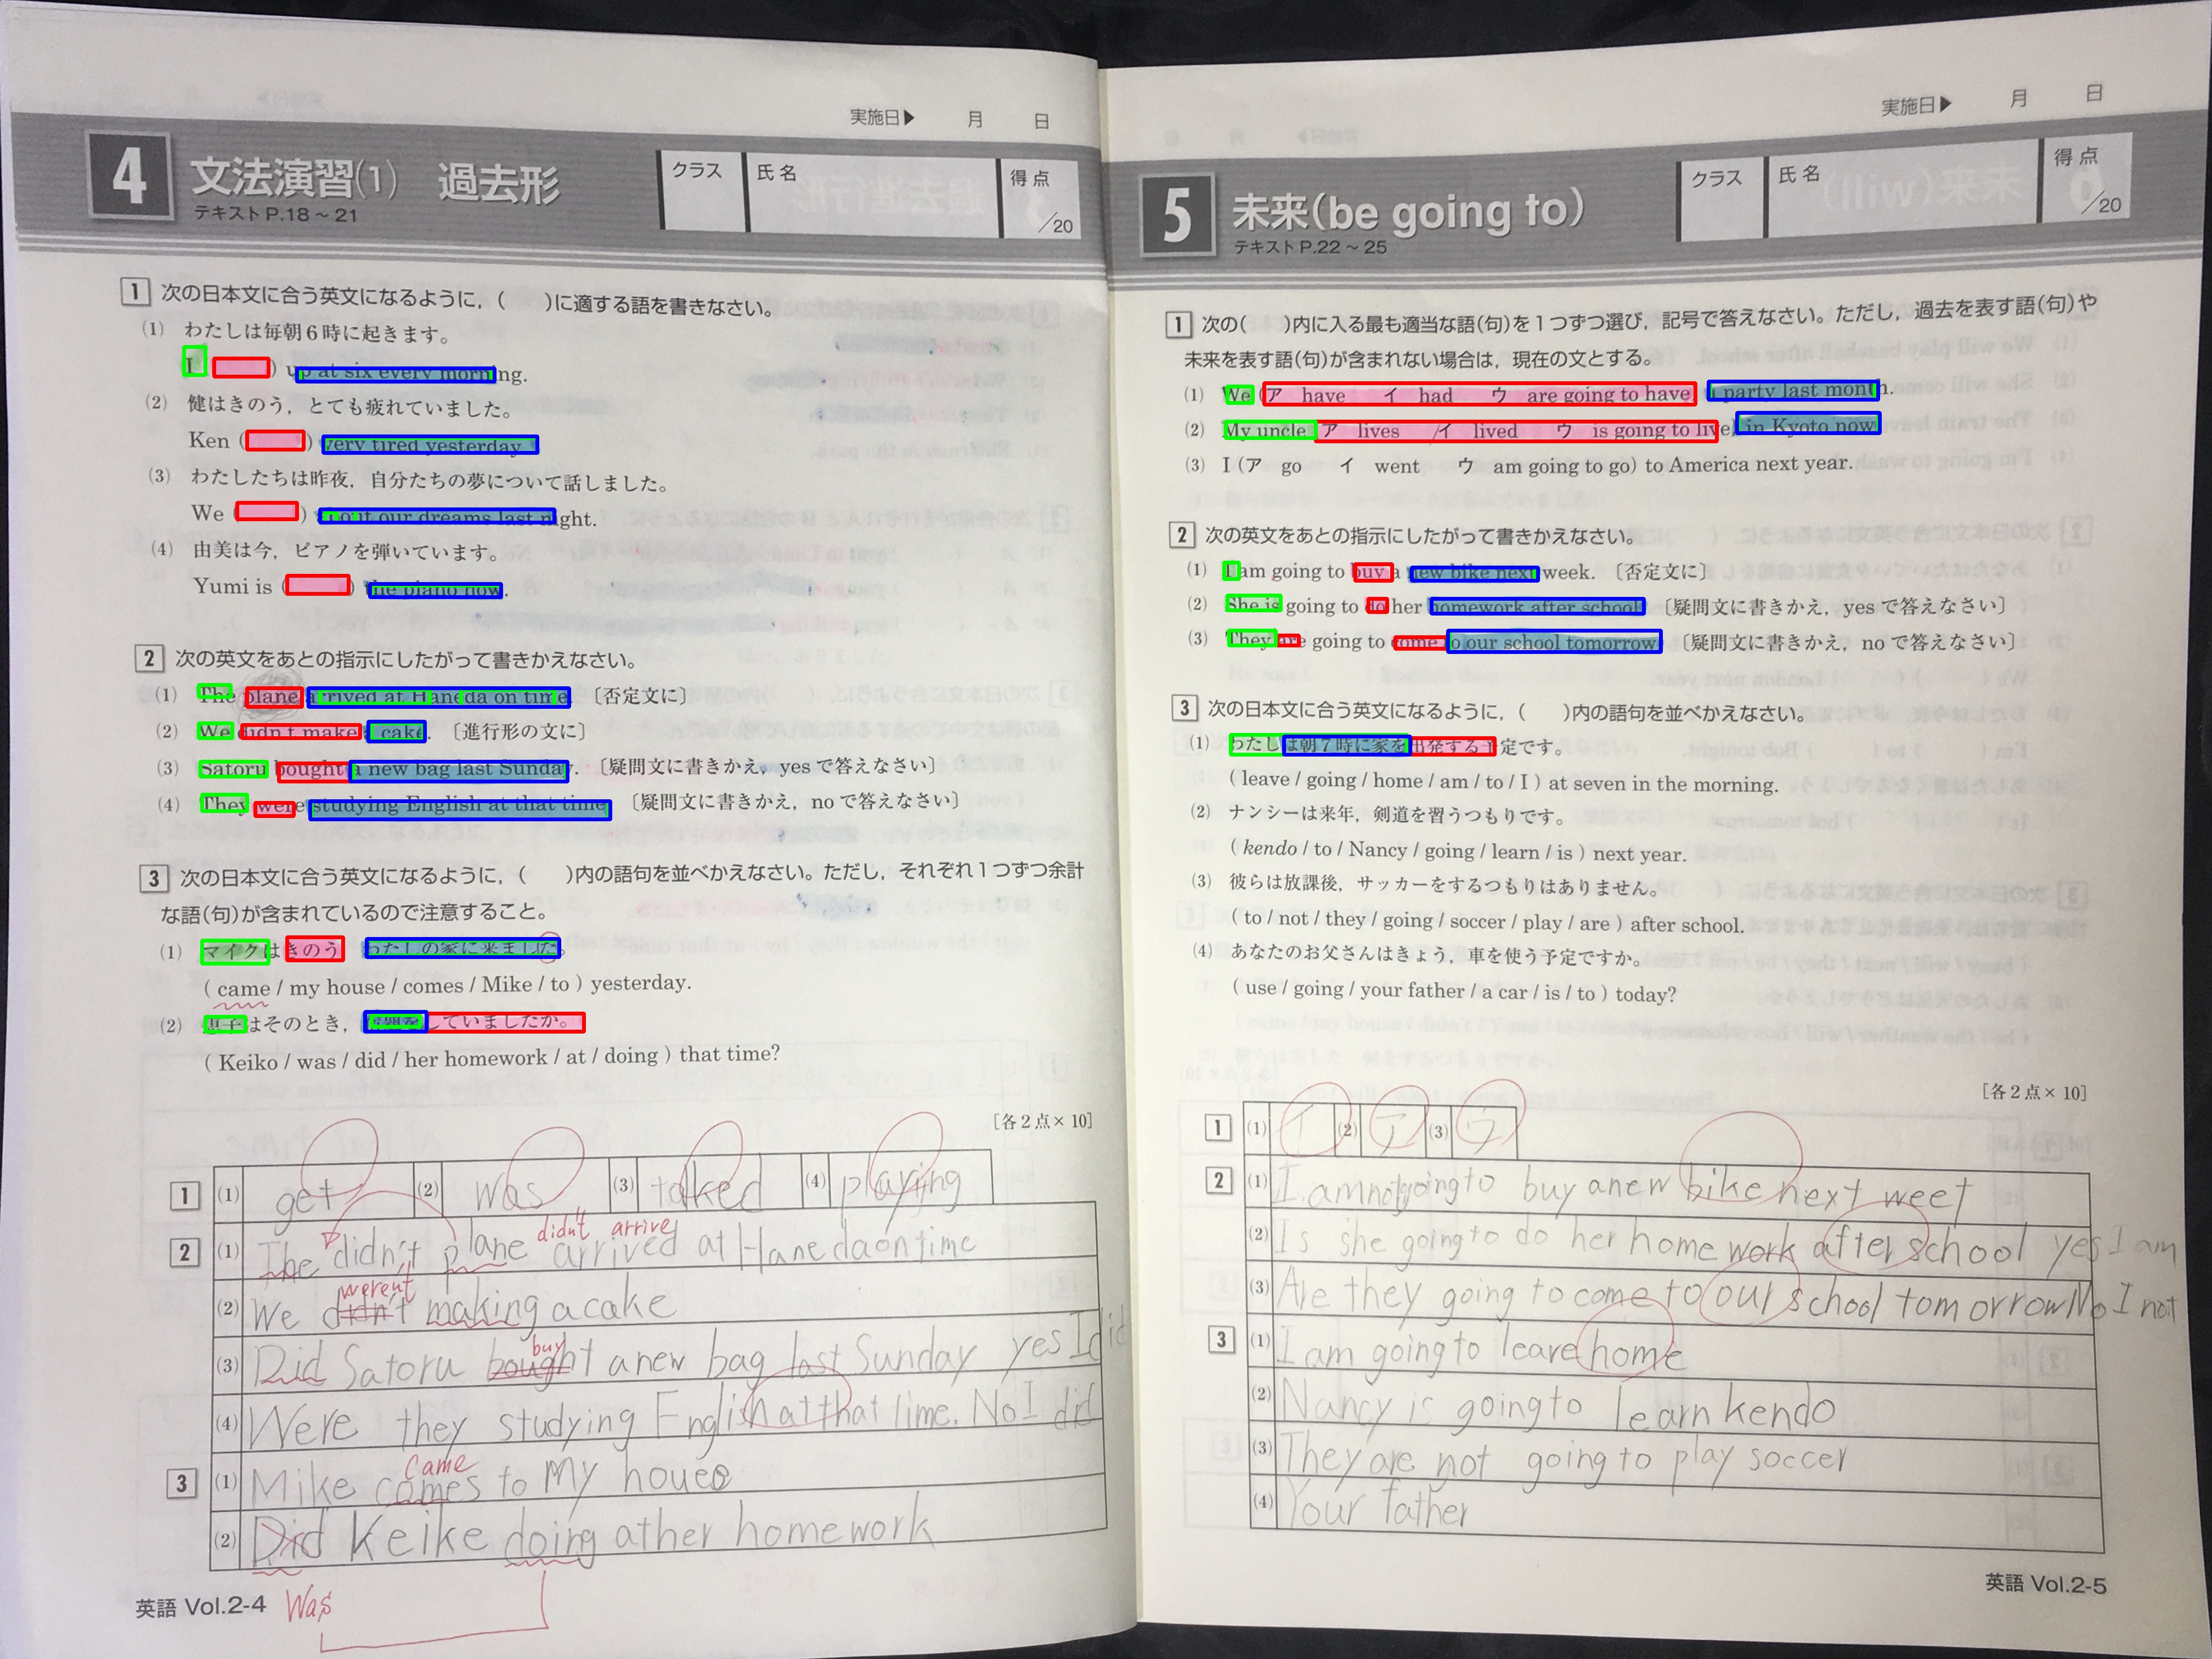 実施日▶ 月 日
4 文法演習(1) 過去形
テキストP.18～21
クラス 氏名 得点 /20
1 次の日本文に合う英文になるように，( )に適する語を書きなさい。
(1) わたしは毎朝6時に起きます。
I ( ) up at six every morning.
(2) 健はきのう，とても疲れていました。
Ken ( ) very tired yesterday.
(3) わたしたちは昨夜，自分たちの夢について話しました。
We ( ) about our dreams last night.
(4) 由美は今，ピアノを弾いています。
Yumi is ( ) the piano now.
2 次の英文をあとの指示にしたがって書きかえなさい。
(1) The plane arrived at Haneda on time. 〔否定文に〕
(2) We didn't make a cake. 〔進行形の文に〕
(3) Satoru bought a new bag last Sunday. 〔疑問文に書きかえ，yesで答えなさい〕
(4) They were studying English at that time. 〔疑問文に書きかえ，noで答えなさい〕
3 次の日本文に合う英文になるように，( )内の語句を並べかえなさい。ただし，それぞれ1つずつ余計
な語(句)が含まれているので注意すること。
(1) マイクはきのう，わたしの家に来ました。
( came / my house / comes / Mike / to ) yesterday.
(2) 恵子はそのとき，宿題をしていましたか。
( Keiko / was / did / her homework / at / doing ) that time?
[各2点×10]
1 (1) get (2) was (3) talked (4) playing
didn't arrive
2 (1) The didn't plane arrived at Haneda on time
weren't
(2) We didn't making a cake
buy
(3) Did Satoru bought a new bag last Sunday yes I did
(4) Were they studying English at that time. No I did
came
3 (1) Mike comes to my houes
(2) Did Keike doing at her homework
Was
英語 Vol.2-4
実施日▶ 月 日
5 未来(be going to)
テキストP.22～25
クラス 氏名 得点 /20
1 次の( )内に入る最も適当な語(句)を1つずつ選び，記号で答えなさい。ただし，過去を表す語(句)や
未来を表す語(句)が含まれない場合は，現在の文とする。
(1) We (ア have イ had ウ are going to have) a party last month.
(2) My uncle (ア lives イ lived ウ is going to live) in Kyoto now.
(3) I (ア go イ went ウ am going to go) to America next year.
2 次の英文をあとの指示にしたがって書きかえなさい。
(1) I am going to buy a new bike next week. 〔否定文に〕
(2) She is going to do her homework after school. 〔疑問文に書きかえ，yesで答えなさい〕
(3) They are going to come to our school tomorrow. 〔疑問文に書きかえ，noで答えなさい〕
3 次の日本文に合う英文になるように，( )内の語句を並べかえなさい。
(1) わたしは朝7時に家を出発する予定です。
( leave / going / home / am / to / I ) at seven in the morning.
(2) ナンシーは来年，剣道を習うつもりです。
( kendo / to / Nancy / going / learn / is ) next year.
(3) 彼らは放課後，サッカーをするつもりはありません。
( to / not / they / going / soccer / play / are ) after school.
(4) あなたのお父さんはきょう，車を使う予定ですか。
( use / going / your father / a car / is / to ) today?
[各2点×10]
1 (1) イ (2) ア (3) ウ
2 (1) I am not going to buy a new bike next weet
(2) Is she going to do her home work after school yes I am
(3) Are they going to come to our school tomorrow No I not
3 (1) I am going to leave home
(2) Nancy is going to learn kendo
(3) They are not going to play soccer
(4) Your father
英語 Vol.2-5